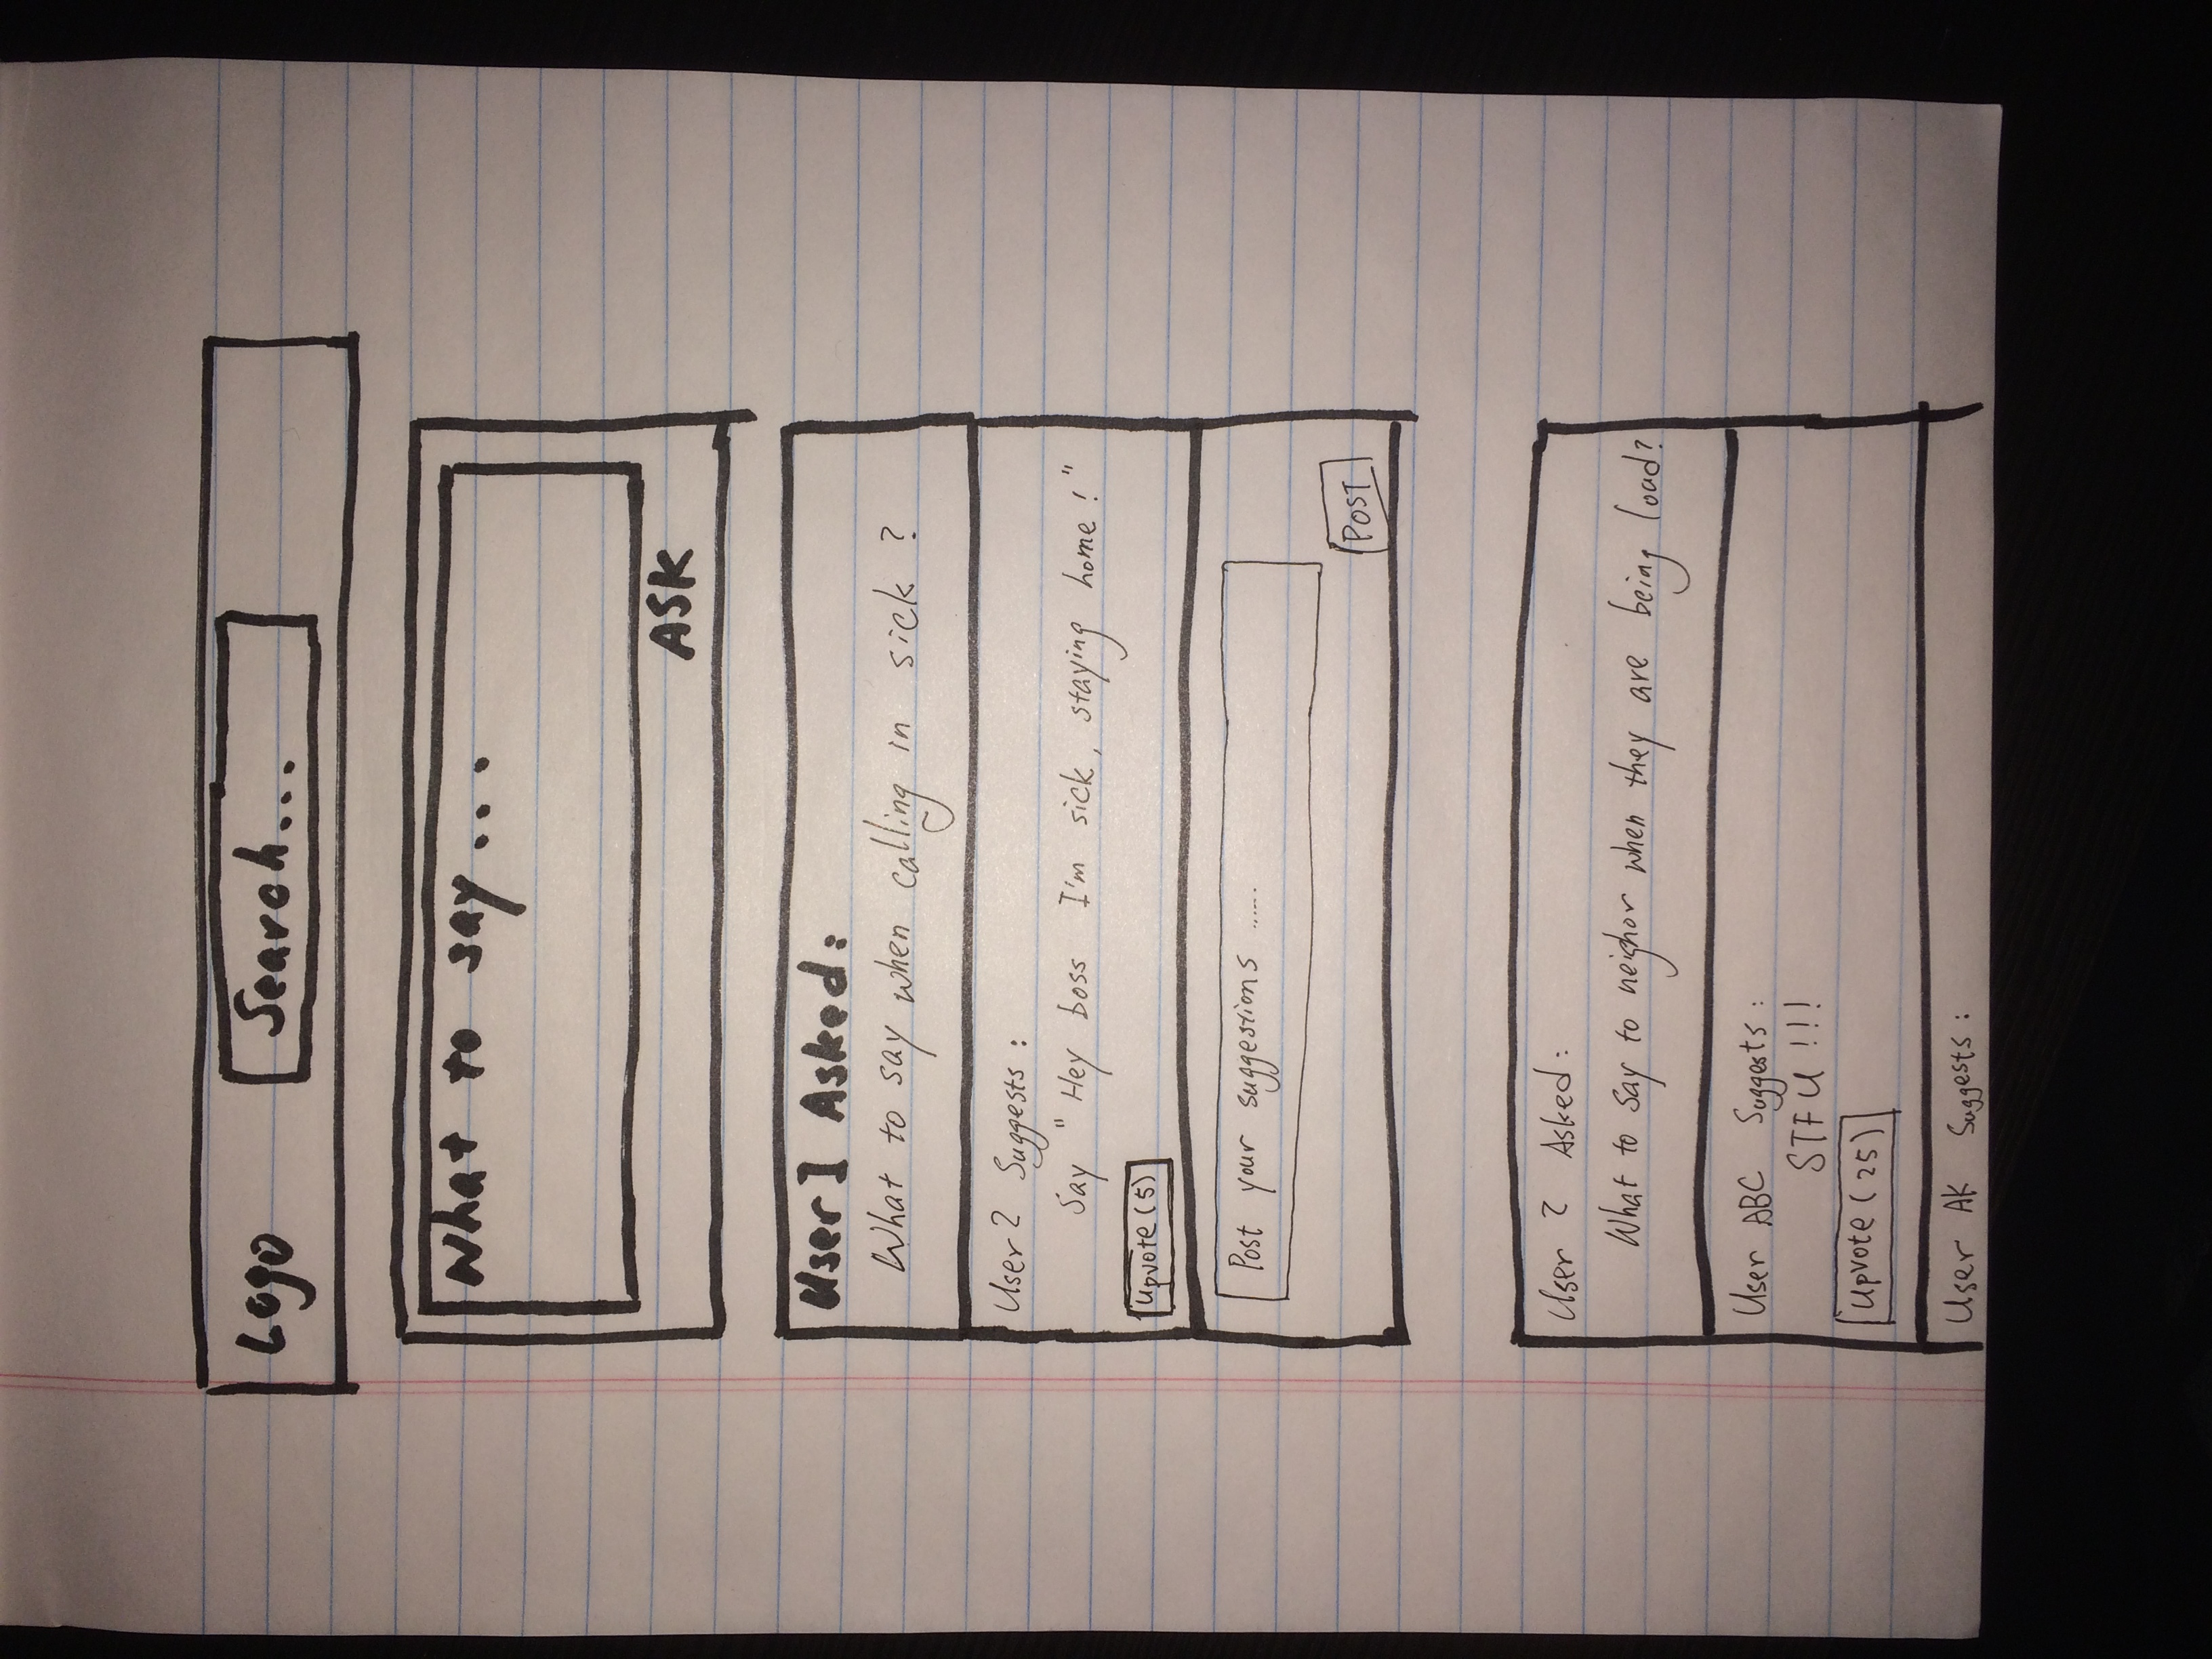 Logo
Search...
What to say...
ASK
User1 Asked:
What to say when calling in sick ?
User2 Suggests :
Say "Hey boss I'm sick, staying home!"
Upvote(5)
Post your suggestions ......
POST
User 2 Asked:
What to say to neighor when they are being loud?
User ABC Suggests :
STFU!!!
Upvote(25)
User AK Suggests :